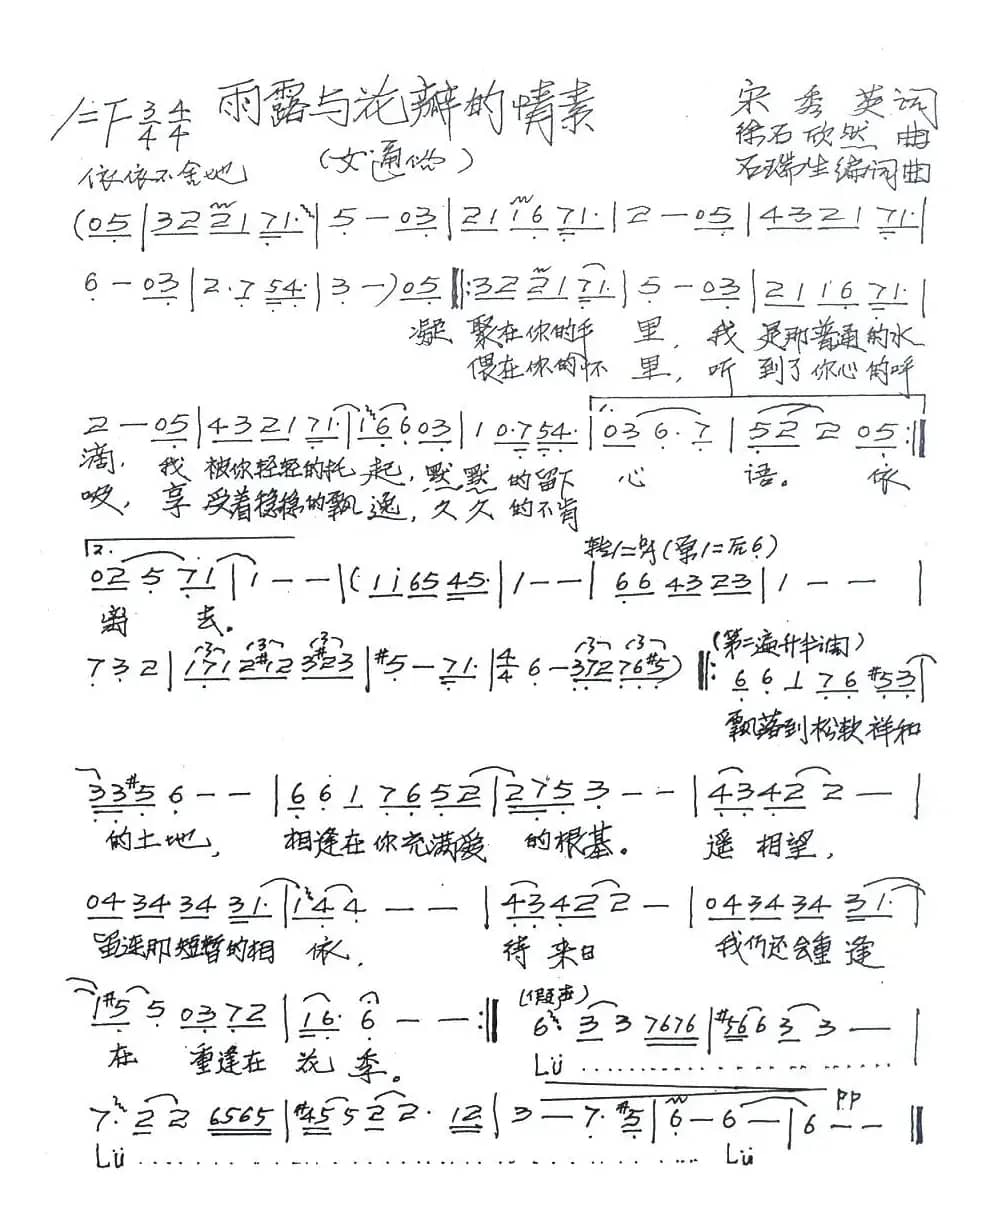 1=F 3/4 4/4 雨露与花瓣的情素 宋秀英词
徐石欣然 曲
依依不舍地 石瑞生编词曲
(05|32 21 71·|5 - 03|21 16 71·|2 - 05|43 21 71·|
6 - 03|2·7 54·|3 -)05‖:32 21 71·|5 - 03|21 16 71·|
凝 聚在你的手 里, 我 是那普通的水
偎在你的怀 里, 听 到了你心的呼
2 - 05|43 21 71·|16 6 03|1 0·7 54·|1. 03 6·7|52 2 05:‖
滴, 我 被你轻轻的托 起, 默 默 的留下 心 语。 依
吸, 享 受着稳稳的飘 逸, 久 久 的不肯
转1=♭A(第1=后6)
2. 02 5 71|1 - -|(11 65 45·|1 - -|66 43 23|1 - -|
离 去。
(第二遍升半调)
7 3 2|171 2#12 3#23|#5 - 71·|4/4 6 - 372 76#5)‖:66 1 76 #53|
飘落到松软祥和
33#5 6 - -|66 1 76 52|275 3 - -|43 42 2 -|
的土地, 相逢在你充满爱 的根基。 遥 相望,
04 34 34 31·|14 4 - -|43 42 2 -|04 34 34 31·|
留连那短暂的相 依, 待 来日 我仍还会重 逢
(假声)
1#5 5 03 72|16· 6 - -:‖6 3 3 7676|#56 6 3 3 -|
在 重逢在 花 季。 Lü
pp
7· 2 2 6565|#45 5 2 2· 12|3 - 7· #5|6 - 6 -|6 - -‖
Lü Lü